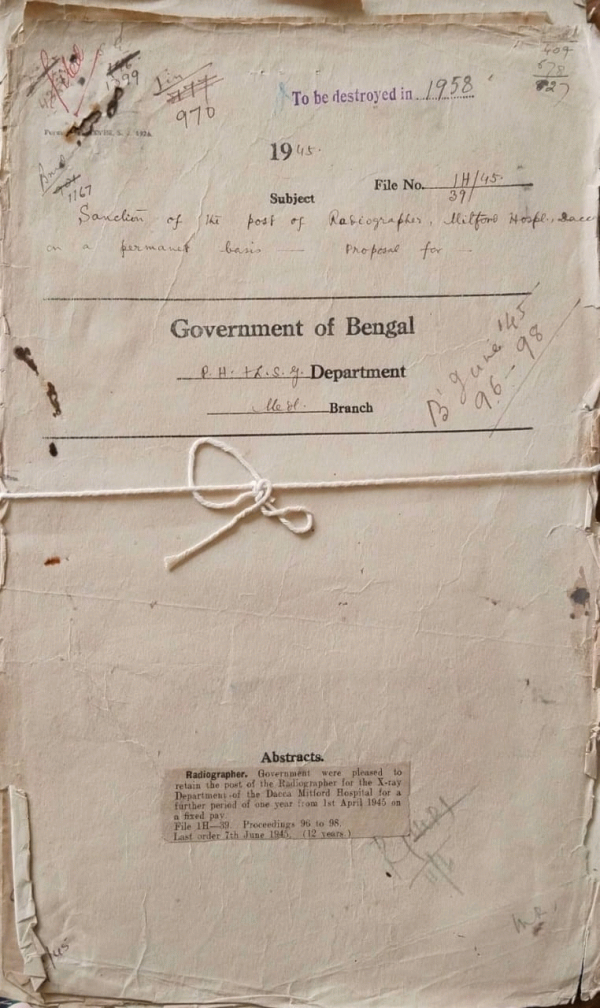 1299
409
678
827
1in
970
To be destroyed in 1958
1945.
1167
File No. 1H/45.
39
Subject
Sanction of the post of Radiographer, Mitford Hospl., Dacca
on a permanent basis — Proposal for —
Government of Bengal
P. H. & L. S. G. Department
Med. Branch
B June '45
96 – 98
Abstracts.
Radiographer. Government were pleased to
retain the post of the Radiographer for the X-ray
Department of the Dacca Mitford Hospital for a
further period of one year from 1st April 1945 on
a fixed pay
File 1H—39. Proceedings 96 to 98.
Last order 7th June 1945. (12 years.)